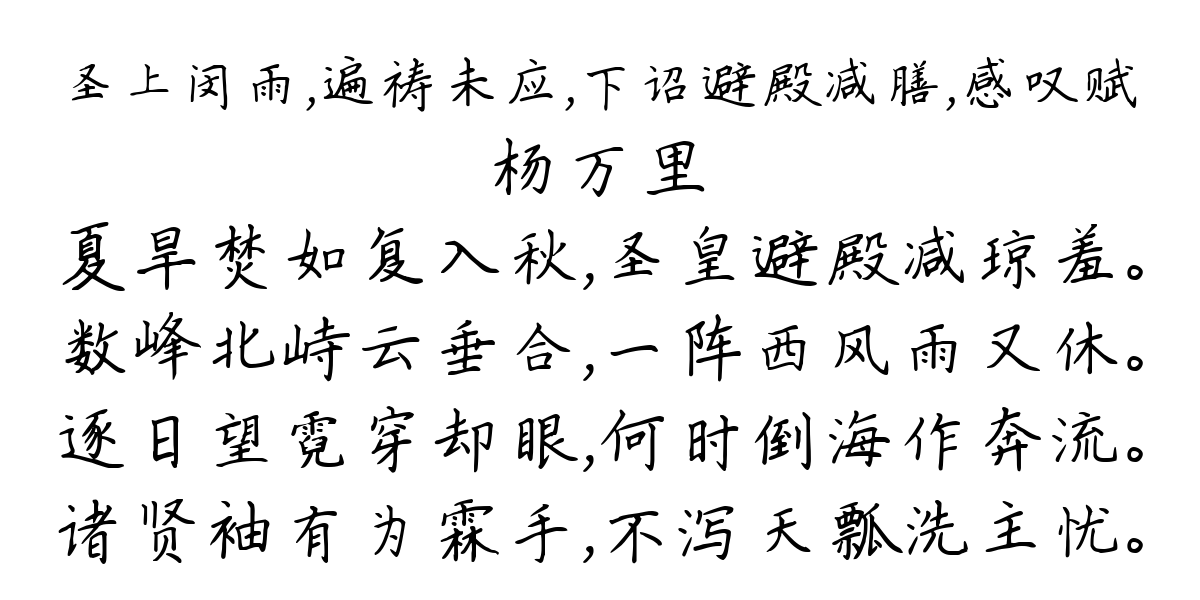 圣上闵雨,遍祷未应,下诏避殿减膳,感叹赋
杨万里
夏旱焚如复入秋,圣皇避殿减琼羞。
数峰北峙云垂合,一阵西风雨又休。
逐日望霓穿却眼,何时倒海作奔流。
诸贤袖有为霖手,不泻天瓢洗主忧。